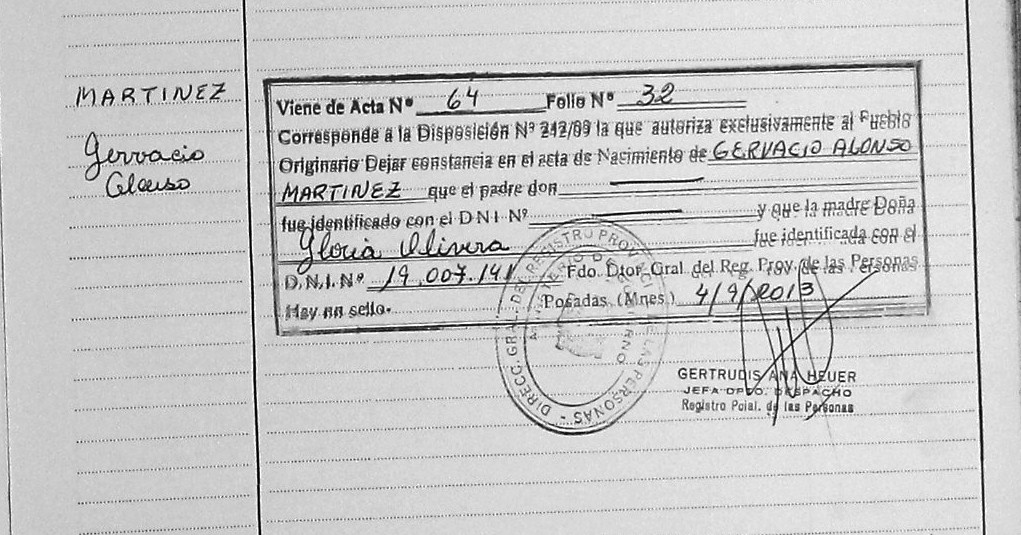 MARTINEZ
Gervacio
Alonso
Viene de Acta Nº 64 Folio Nº 32
Corresponde a la Disposición Nº 242/09 la que autoriza exclusivamente al Pueblo
Originario Dejar constancia en el acta de Nacimiento de GERVACIO ALONSO
MARTINEZ que el padre don
fue identificado con el D N I Nº y que la madre Doña
Gloria Olivera fue identificada con el
D.N.I. Nº 19.007.141 Fdo. Dtor. Gral. del Reg. Prov. de las Personas
Hay un sello. Posadas (Mnes) 4/9/2013
DIRECC. GRAL. DEL REGISTRO PROVINCIAL DE LAS PERSONAS
MINISTERIO DE GOBIERNO
GERTRUDIS ANA HEUER
JEFA DPTO. DESPACHO
Registro Pcial. de las Personas